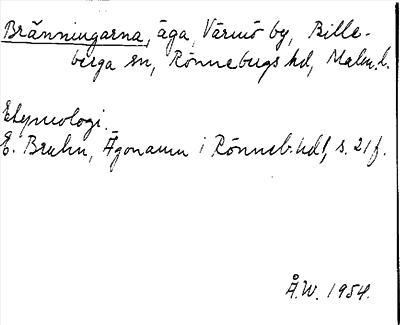 Bränningarna, äga, Värmö by, Bille-
berga sn, Rönnebergs hd, Malm. l.
Etymologi.
E. Bruhn, Ägonamn i Rönneb. hd1, s. 21 f.
Å.W. 1954.